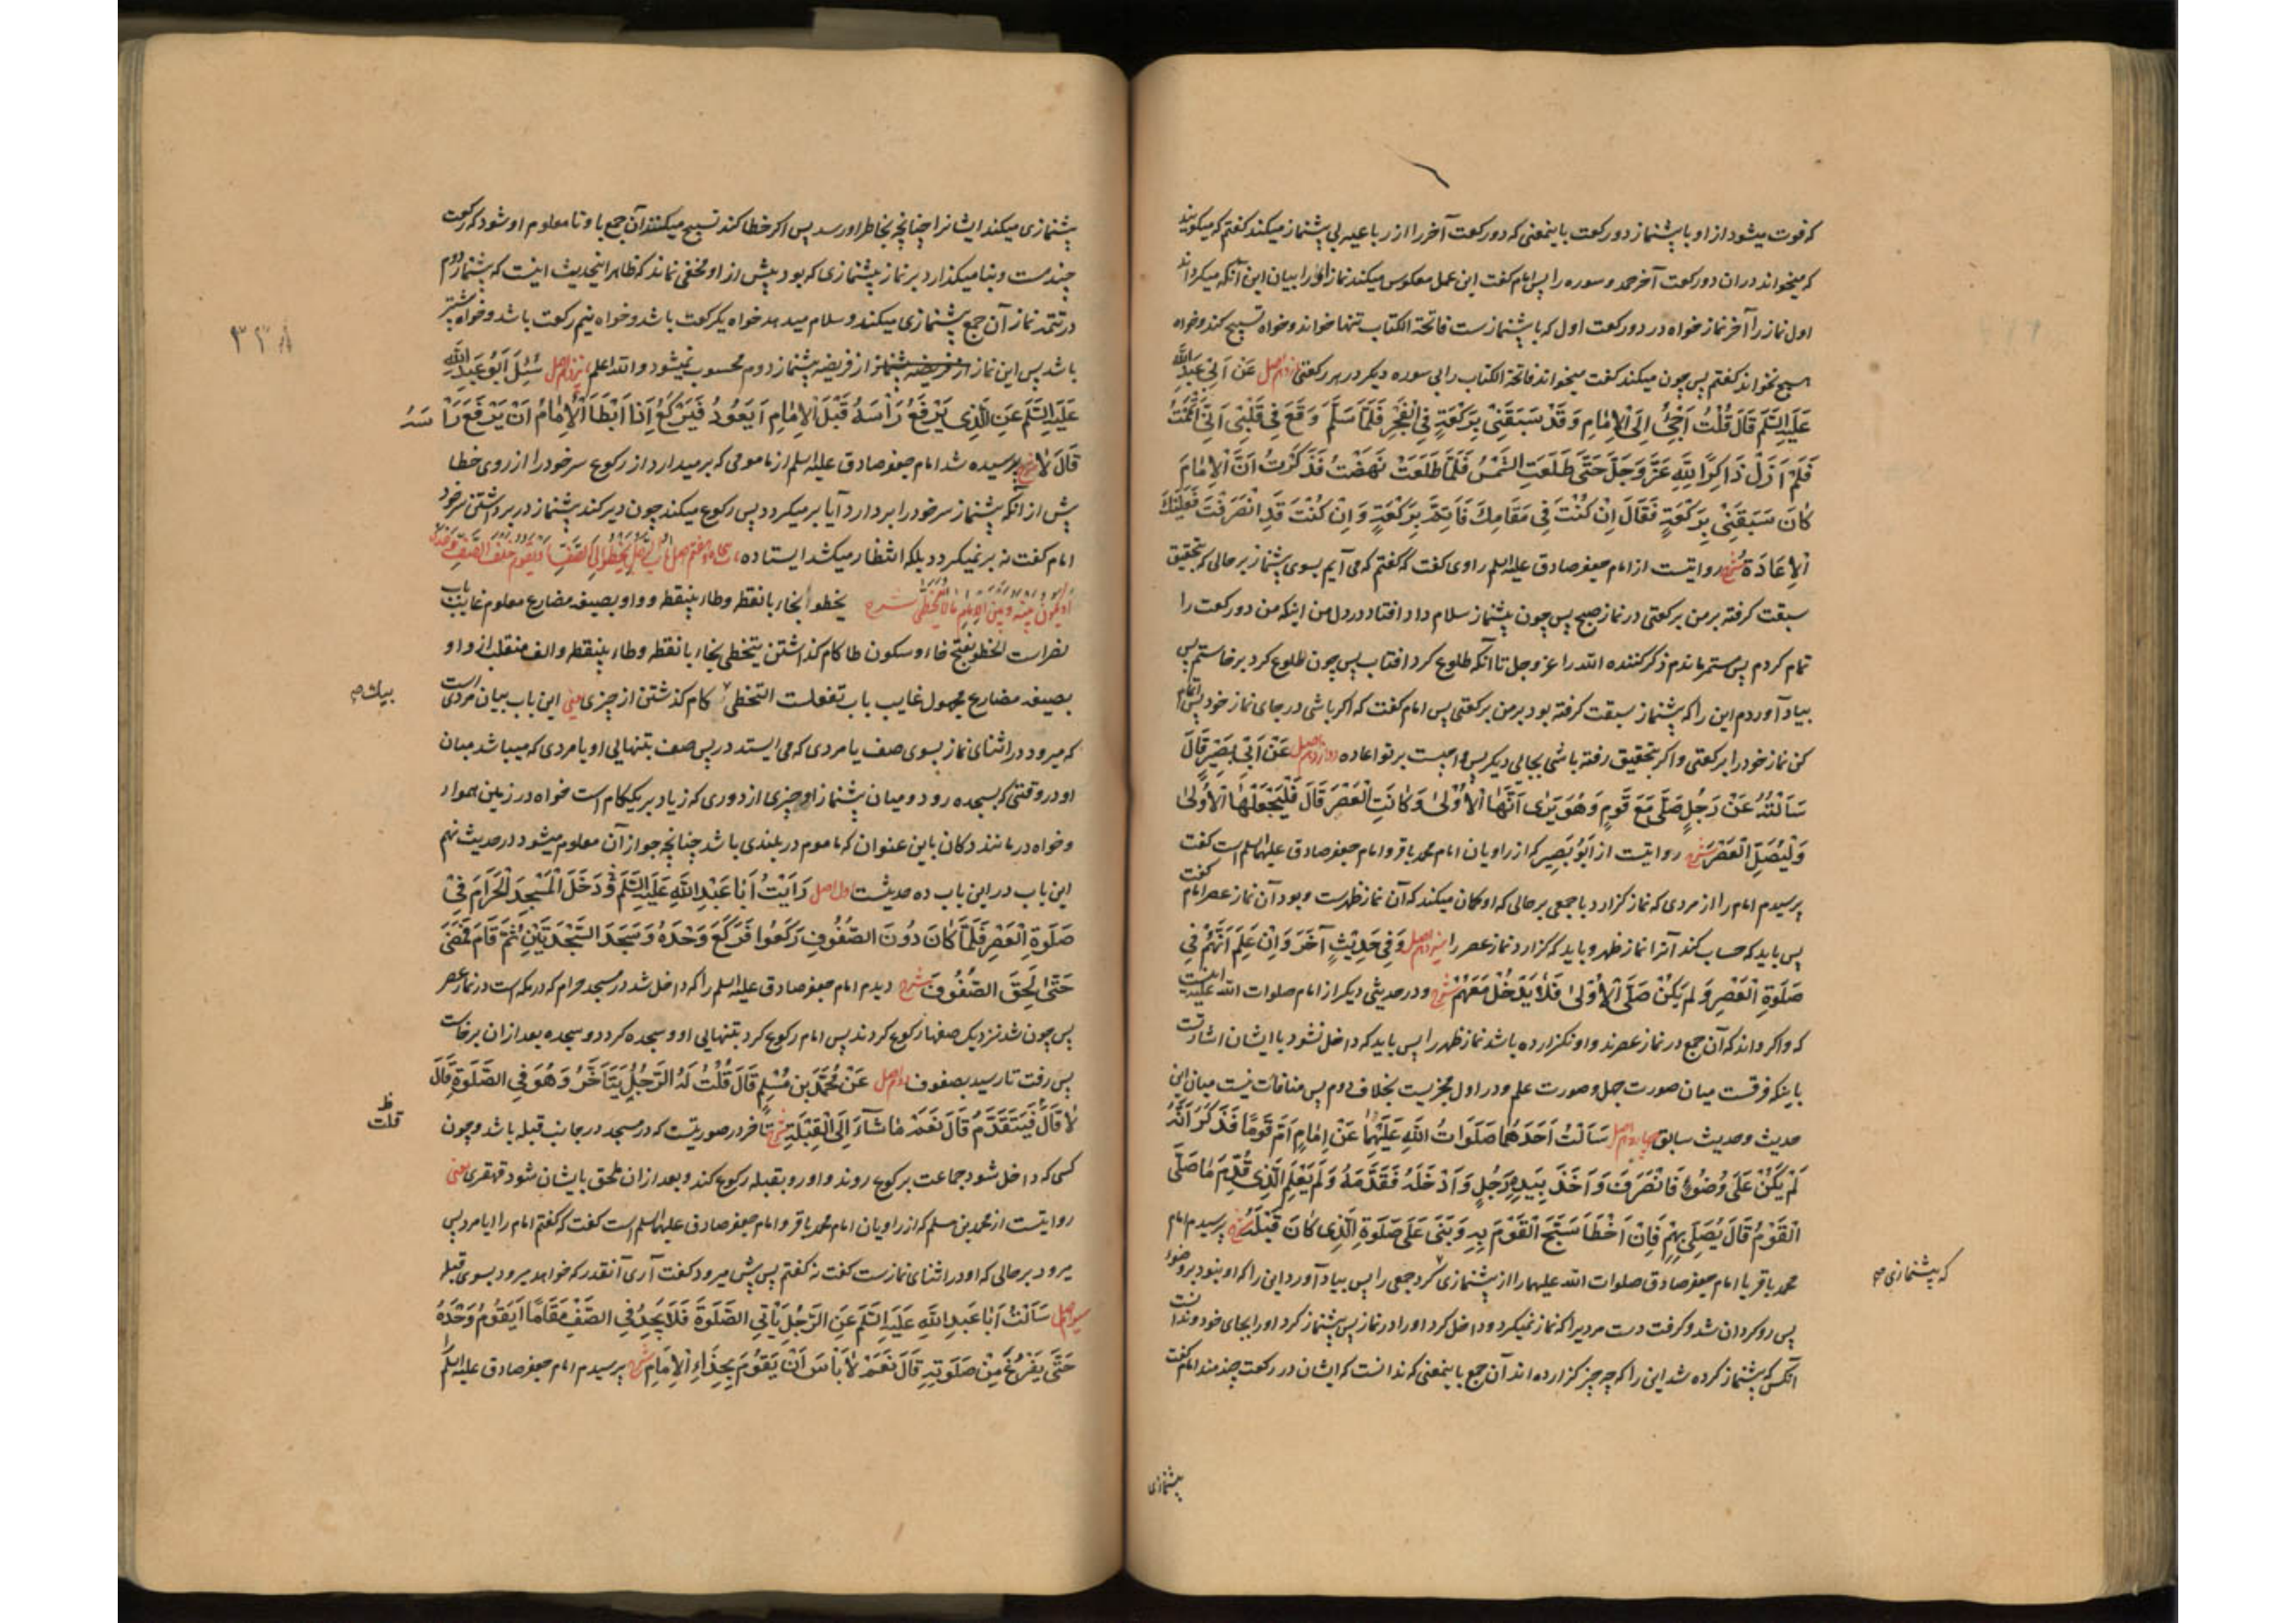 که فوت میشود از او با پیشنماز دو رکعت باینمعنی که دو رکعت آخر را از رباعیه بی پیشنماز میکند گفتم که میگویند
که میخواند در ان دو رکعت آخر حمد و سوره را پس امام گفت این عمل معکوس میکند نماز او را بیان این آنکه میگرداند
اول نماز را آخر نماز خواه در دو رکعت اول که با پیشنمازست فاتحة الکتاب تنها خواند و خواه تسبیح کند و خواه
هیچ نخواند گفتم پس چون میکند گفت میخواند فاتحة الکتاب را بی سوره دیکر در هر رکعتی یازدهم اصل عَنْ اَبِی عَبْدِاللّٰهِ
عَلَیْهِ السَّلَم قَالَ قُلْتُ اَجِیُٔ اِلَی الْاِمٰامِ وَ قَدْ سَبَقَنِیْ بِرَکْعَةٍ فِی الْفَجْرِ فَلَمّٰا سَلَّمَ وَقَعَ فِی قَلْبِی اَنّی اَتْمَمْتُ
فَلَمْ اَزَلْ ذَاکِرًا لِلّٰهِ عَزَّ وَجَلَّ حَتَّی طَلَعَتِ الشَّمْسُ فَلَمّٰا طَلَعَتْ نَهَضْتُ فَذَکَرْتُ اَنَّ الْاِمٰامَ
کَانَ سَبَقَنِی بِرَکْعَةٍ فَقَالَ اِنْ کُنْتَ فِی مَقَامِکَ فَاَتِمَّ بِرَکْعَةٍ وَ اِنْ کُنْتَ قَدِ انْصَرَفْتَ فَعَلَیْکَ
الْاِعَادَةُ شرح روایتست از امام جعفر صادق علیه السلم راوی گفت که گفتم که می آیم بسوی پیشنماز بر حالی که بتحقیق
سبقت گرفته بر من برکعتی در نماز صبح پس چون پیشنماز سلام داد افتاد در دل من اینکه من دو رکعت را
تمام کردم پس مستمر ماندم ذکر کننده الله را عز و جل تا آنکه طلوع کرد افتاب پس چون طلوع کرد برخاستم پس
بیاد آوردم این را که پیشنماز سبقت گرفته بود بر من برکعتی پس امام گفت که اکر باشی در جای نماز خود پس اتمام
کن نماز خود را برکعتی و اکر بتحقیق رفته باشی بجائی دیکر پس واجبست بر تو اعاده دوازدهم اصل عَنْ اَبِی بَصِیْرٍ قَالَ
سَاَلْتُهُ عَنْ رَجُلٍ صَلَّی مَعَ قَوْمٍ وَهُوَ یَرٰی اَنَّهٰا الْاُوْلٰی وَ کَانَتِ الْعَصْرَ قَالَ فَلْیَجْعَلْهَا الْاُوْلٰی
وَلْیُصَلِّ الْعَصْرَ شرح روایتست از اَبُوْ بَصِیْر که از راویان امام محمد باقر و امام جعفر صادق علیهما السلم است گفت
پرسیدم امام را از مردی که نماز کزارد با جمعی بر حالی که او کمان میکند که آن نماز ظهرست و بود آن نماز عصر امام گفت
پس باید که حساب کند آنرا نماز ظهر و باید که کزارد نماز عصر را سیزدهم اصل وَفِی حَدِیْثٍ آخَرَ وَ اِنْ عَلِمَ اَنَّهُمْ فِی
صَلٰوةِ الْعَصْرِ وَ لَمْ یَکُنْ صَلَّی الْاُوْلٰی فَلَا یَدْخُلْ مَعَهُمْ شرح و در حدیثی دیکر از امام صلوات الله علیه اینست
که و اکر داند که آن جمع در نماز عصرند و او نکزارده باشد نماز ظهر را پس باید که داخل نشود با ایشان اشارتست
باینکه فرقست میان صورت جهل و صورت علم و در اول مجزیست بخلاف دوم پس منافات نیست میان این
حدیث و حدیث سابق چهاردهم اصل سَاَلْتُ اَحَدَهُمٰا صَلَوَاتُ اللّٰهِ عَلَیْهِمٰا عَنْ اِمٰامٍ اَمَّ قَوْمًا فَذَکَرَ اَنَّهُ
لَمْ یَکُنْ عَلَی وُضُوْءٍ فَانْصَرَفَ وَ اَخَذَ بِیَدِ رَجُلٍ وَ اَدْخَلَهُ فَقَدَّمَهُ وَ لَمْ یَعْلَمِ الَّذِی قُدِّمَ مٰا صَلَّی
الْقَوْمُ قَالَ یُصَلِّی بِهِمْ فَاِنْ اَخْطَاَ سَبَّحَ الْقَوْمُ بِهِ وَ بَنٰی عَلَی صَلٰوةِ الَّذِی کَانَ قَبْلَهُ شرح پرسیدم امام
محمد باقر یا امام جعفر صادق صلوات الله علیهما را از پیشنمازی کرد جمعی را پس بیاد آورد این را که او نبود بر وضوء
که پیشنمازی صح
پس رو گردان شد و گرفت دست مردیرا که نماز نمیکرد و داخل کرد او را در نماز پس پیشنماز کرد او را بجای خود و ندانست
آنکس که پیشنماز کرده شد این را که چه چیز کزارده اند آن جمع باینمعنی که ندانست که ایشان در رکعت چندمند امام گفت
پیشنمازی
۳۳۸
پیشنمازی میکند ایشانرا چنانچه بخاطر او رسد پس اکر خطا کند تسبیح میکنند آن جمع با و تا معلوم او شود که رکعت
چندمست و بنا میکذارد بر نماز پیشنمازی که بود پیش از او مخفی نماند که ظاهر اینحدیث اینست که پیشنماز دوم
در تتمه نماز آن جمع پیشنمازی میکند و سلام میدهد خواه یکرکعت باشد و خواه نیم رکعت باشد و خواه بیشتر
باشد پس این نماز از فریضه پیشنماز از فریضه پیشنماز دوم محسوب نمیشود و الله اعلم پانزدهم اصل سُئِلَ اَبُوْ عَبْدِ اللّٰهِ
عَلَیْهِ السَّلَم عَنِ الَّذِی یَرْفَعُ رَاْسَهُ قَبْلَ الْاِمٰامِ اَیَعُوْدُ فَیَرْکَعُ اِذَا اَبْطَاَ الْاِمٰامُ اَنْ یَرْفَعَ رَاْسَهُ
قَالَ لٰا شرح پرسیده شد امام جعفر صادق علیه السلم از مامومی که بر میدارد از رکوع سر خود را از روی خطا
پیش از آنکه پیشنماز سر خود را بردارد آیا بر میکردد پس رکوع میکند چون دیر کند پیشنماز در برداشتن سر خود
امام گفت نه بر نمیکردد بلکه انتظار میکشد ایستاده باب پنجاه و هفتم اصل بَابُ الرَّجُلِ یَخْطُوْ اِلَی الصَّفِّ اَوْ یَقُوْمُ خَلْفَ الصَّفِّ وَحْدَهُ
اَوْ یَکُوْنُ بَیْنَهُ وَ بَیْنَ الْاِمٰامِ مٰا لَا یُتَخَطّٰی شرح یخطو بخاء با نقطه و طاء بینقطه و واو بصیغه مضارع معلوم غایب باب
نصرست الخطو بفتح خاء و سکون طا کام کذاشتن یتخطی بخاء با نقطه و طاء بینقطه و الف منقلب از واو
بصیغه مضارع مجهول غایب باب تفعلست التخطی کام کذشتن از چیزی یعنی این باب بیان مردی است
که میرود در اثنای نماز بسوی صف یا مردی که می ایستد در پس صف بتنهایی او یا مردی که میباشد میان
او در وقتی که بسجده رود و میان پیشنماز او چیزی از دوری که زیاد بر یککام است خواه در زمین هموار
و خواه در مانند دکان باین عنوان که ماموم در بلندی باشد چنانچه جواز آن معلوم میشود در حدیث نهم
این باب در این باب ده حدیثست اول اصل رَاَیْتُ اَبَا عَبْدِ اللّٰهِ عَلَیْهِ السَّلَم وَ دَخَلَ الْمَسْجِدَ الْحَرَامَ فِیْ
صَلٰوةِ الْعَصْرِ فَلَمّٰا کَانَ دُوْنَ الصُّفُوْفِ رَکَعُوا فَرَکَعَ وَحْدَهُ وَ سَجَدَ السَّجْدَتَیْنِ ثُمَّ قَامَ فَمَضٰی
حَتّٰی لَحِقَ الصُّفُوْفَ شرح دیدم امام جعفر صادق علیه السلم را که داخل شد در مسجد حرام که در مکه است در نماز عصر
پس چون شد نزدیک صفها رکوع کردند پس امام رکوع کرد بتنهایی او و سجده کرد دو سجده بعد از ان برخاست
پس رفت تا رسید بصفوف دوم اصل عَنْ مُحَمَّدِ بْنِ مُسْلِمٍ قَالَ قُلْتُ لَهُ الرَّجُلُ یَتَاَخَّرُ وَهُوَ فِی الصَّلٰوةِ قَالَ
ظ قلت
لٰا قَالَ فَیَتَقَدَّمُ قَالَ نَعَمْ مٰا شٰآءَ اِلَی الْقِبْلَةِ شرح تاخر در صورتیست که در مسجد در جانب قبله باشد و چون
کسی که داخل شود جماعت برکوع روند و او رو بقبله رکوع کند و بعد از ان ملحق بایشان شود قهقری یعنی
روایتست از محمد بن مسلم که از راویان امام محمد باقر و امام جعفر صادق علیهما السلم است گفت که گفتم امام را ایا مرد پس
میرود بر حالی که او در اثنای نمازست گفت نه گفتم پس پیش میرود گفت آری آنقدر که خواهد میرود بسوی قبله
سیوم اصل سَاَلْتُ اَبَا عَبْدِ اللّٰهِ عَلَیْهِ السَّلَم عَنِ الرَّجُلِ یَاْتِی الصَّلٰوةَ فَلَا یَجِدُ فِی الصَّفِّ مَقَامًا اَیَقُوْمُ وَحْدَهُ
حَتّٰی یَفْرُغَ مِنْ صَلٰوتِهِ قَالَ نَعَمْ لٰا بَاْسَ اَنْ یَقُوْمَ بِحِذَاءِ الْاِمٰامِ شرح پرسیدم امام جعفر صادق علیه السلم